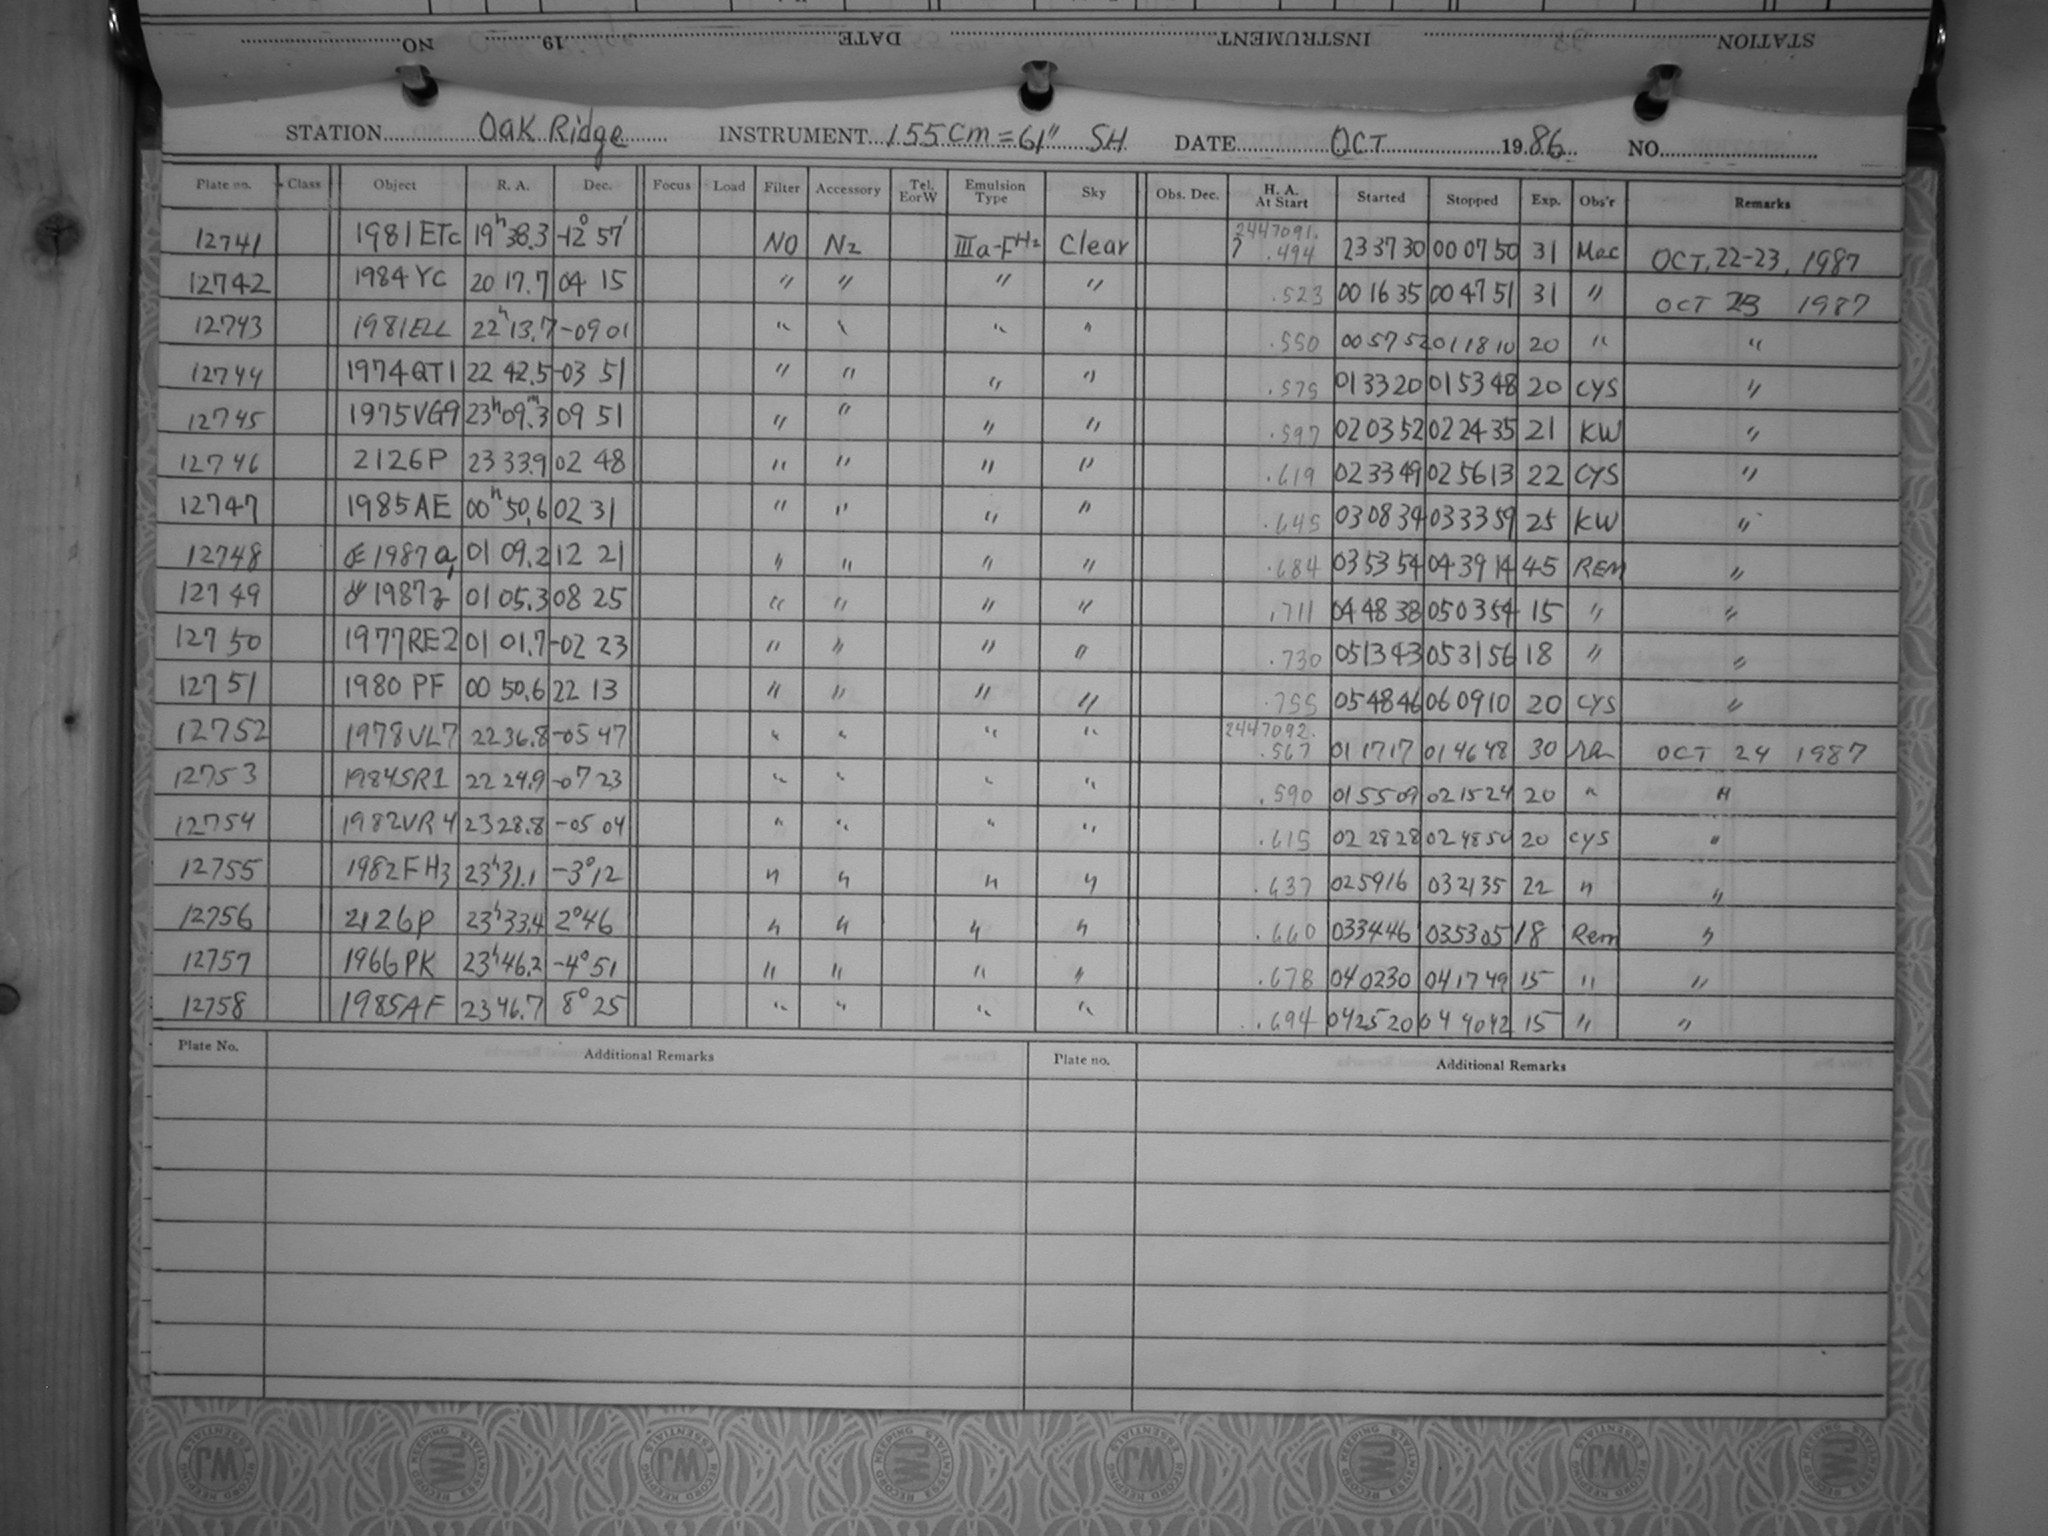 STATION INSTRUMENT DATE 19 NO
STATION Oak Ridge INSTRUMENT 155cm=61" SH DATE OCT 1986 NO
Plate no. Class Object R. A. Dec. Focus Load Filter Accessory Tel. EorW Emulsion Type Sky Obs. Dec. H. A. At Start Started Stopped Exp. Obs'r Remarks
12741 1981ETc 19h38.3 -12°57' NO N2 IIIa-FH2 Clear 2447091. .494 23 37 30 00 07 50 31 Mac OCT, 22-23, 1987
12742 1984 YC 20 17.7 04 15 " " " " .523 00 16 35 00 47 51 31 " OCT 23 1987
12743 1981ELL 22h13.7 -09 01 " " " " .550 00 57 52 01 18 10 20 " "
12744 1974QT1 22 42.5 -03 51 " " " " .575 01 33 20 01 53 48 20 CYS "
12745 1975VG9 23h09m.3 09 51 " " " " .597 02 03 52 02 24 35 21 KW "
12746 2126P 23 33.9 02 48 " " " " .619 02 33 49 02 56 13 22 CYS "
12747 1985AE 00h50.6 02 31 " " " " .645 03 08 34 03 33 59 25 KW "
12748 1987a1 01 09.2 12 21 " " " " .684 03 53 54 04 39 14 45 REM "
12749 1987 01 05.3 08 25 " " " " .711 04 48 38 05 03 54 15 " "
12750 1977RE2 01 01.7 -02 23 " " " " .730 05 13 43 05 31 56 18 " "
12751 1980 PF 00 50.6 22 13 " " " " .755 05 48 46 06 09 10 20 CYS "
12752 1978VL7 22 36.8 -05 47 " " " " 2447092. .567 01 17 17 01 46 48 30 OCT 24 1987
12753 1984SR1 22 24.9 -07 23 " " " " .590 01 55 09 02 15 24 20 " "
12754 1982VR4 23 28.8 -05 04 " " " " .615 02 28 28 02 48 50 20 CYS "
12755 1982FH3 23h31.1 -3°12 " " " " .637 02 59 16 03 21 35 22 " "
12756 2126P 23h33.4 2°46 " " " " .660 03 34 46 03 53 05 18 Rem "
12757 1966PK 23h46.2 -4°51 " " " " .678 04 02 30 04 17 49 15 " "
12758 1985AF 23 46.7 8°25 " " " " .694 04 25 20 04 40 42 15 " "
Plate No. Additional Remarks Plate no. Additional Remarks
WJ RECORD KEEPING ESSENTIALS